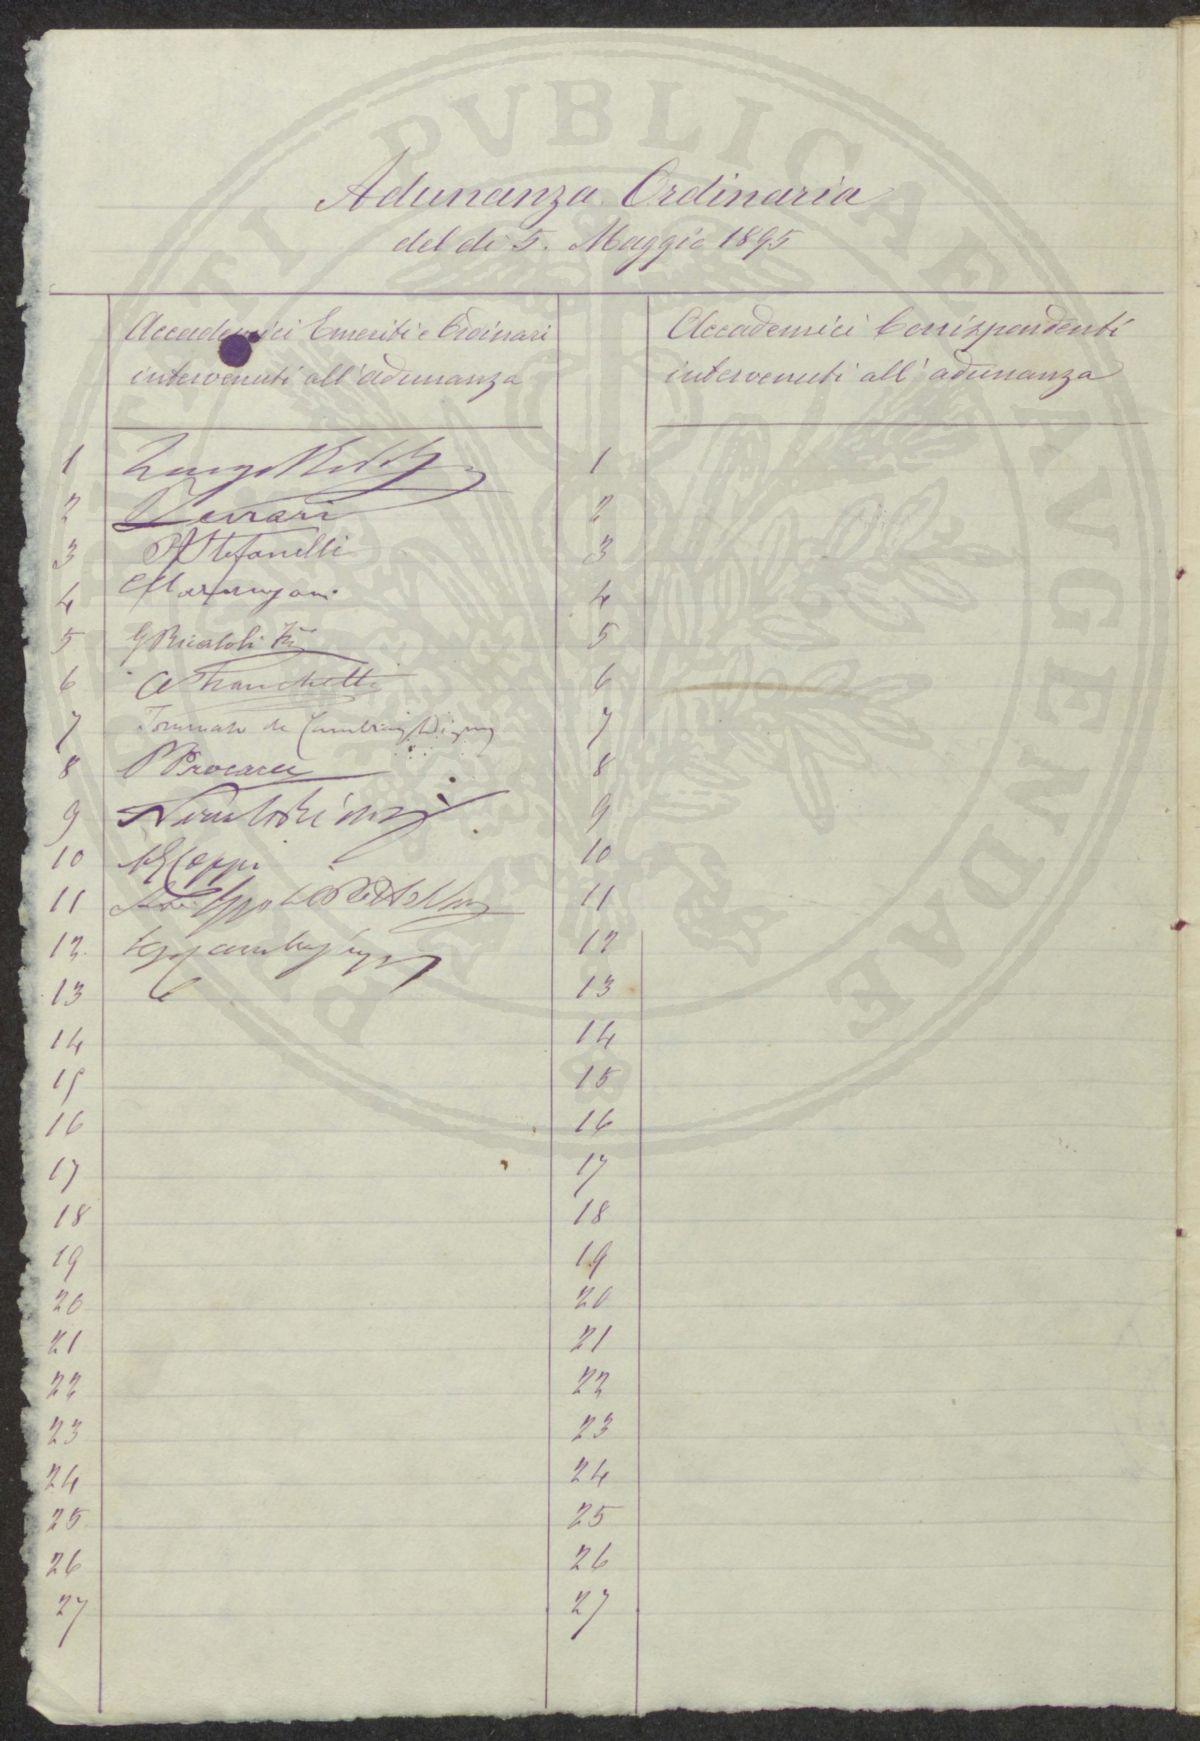 PROSPERITATI PUBLICAE AVGENDAE
Adunanza Ordinaria
del dì 5. Maggio 1895
Accademici Emeriti e Ordinari
intervenuti all'adunanza
Accademici Corrispondenti
intervenuti all'adunanza
1 1
2 Ferrari 2
3 P Stefanelli 3
4 Marangoni 4
5 5
6 A Franchetti 6
7 Tommaso de Cambray Digny 7
8 P Procacci 8
9 9
10 Coppi 10
11 11
12 Cambray Digny 12
13 13
14 14
15 15
16 16
17 17
18 18
19 19
20 20
21 21
22 22
23 23
24 24
25 25
26 26
27 27